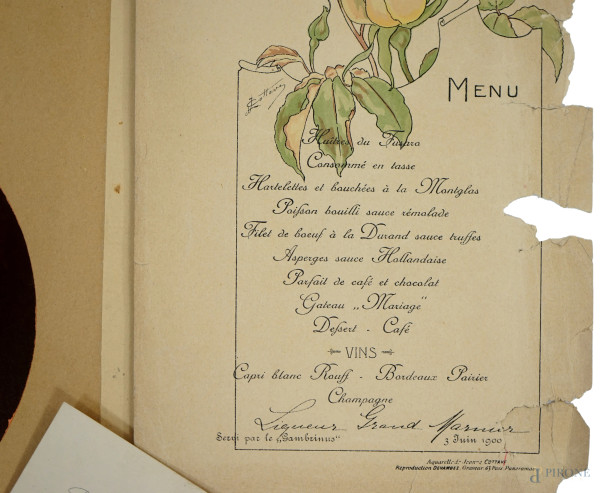 MENU
Huîtres du Fusaro
Consommé en tasse
Hartelettes et bouchées à la Montglas
Poisson bouilli sauce rémolade
Filet de boeuf à la Durand sauce truffes
Asperges sauce Hollandaise
Parfait de café et chocolat
Gateau „Mariage"
Dessert - Café
VINS
Capri blanc Rouff - Bordeaux Pairier
Champagne
Liqueur Grand Marnier
Servi par le „Gambrinus"
3 Juin 1900
Aquarelle de
Reproduction
PIRONE